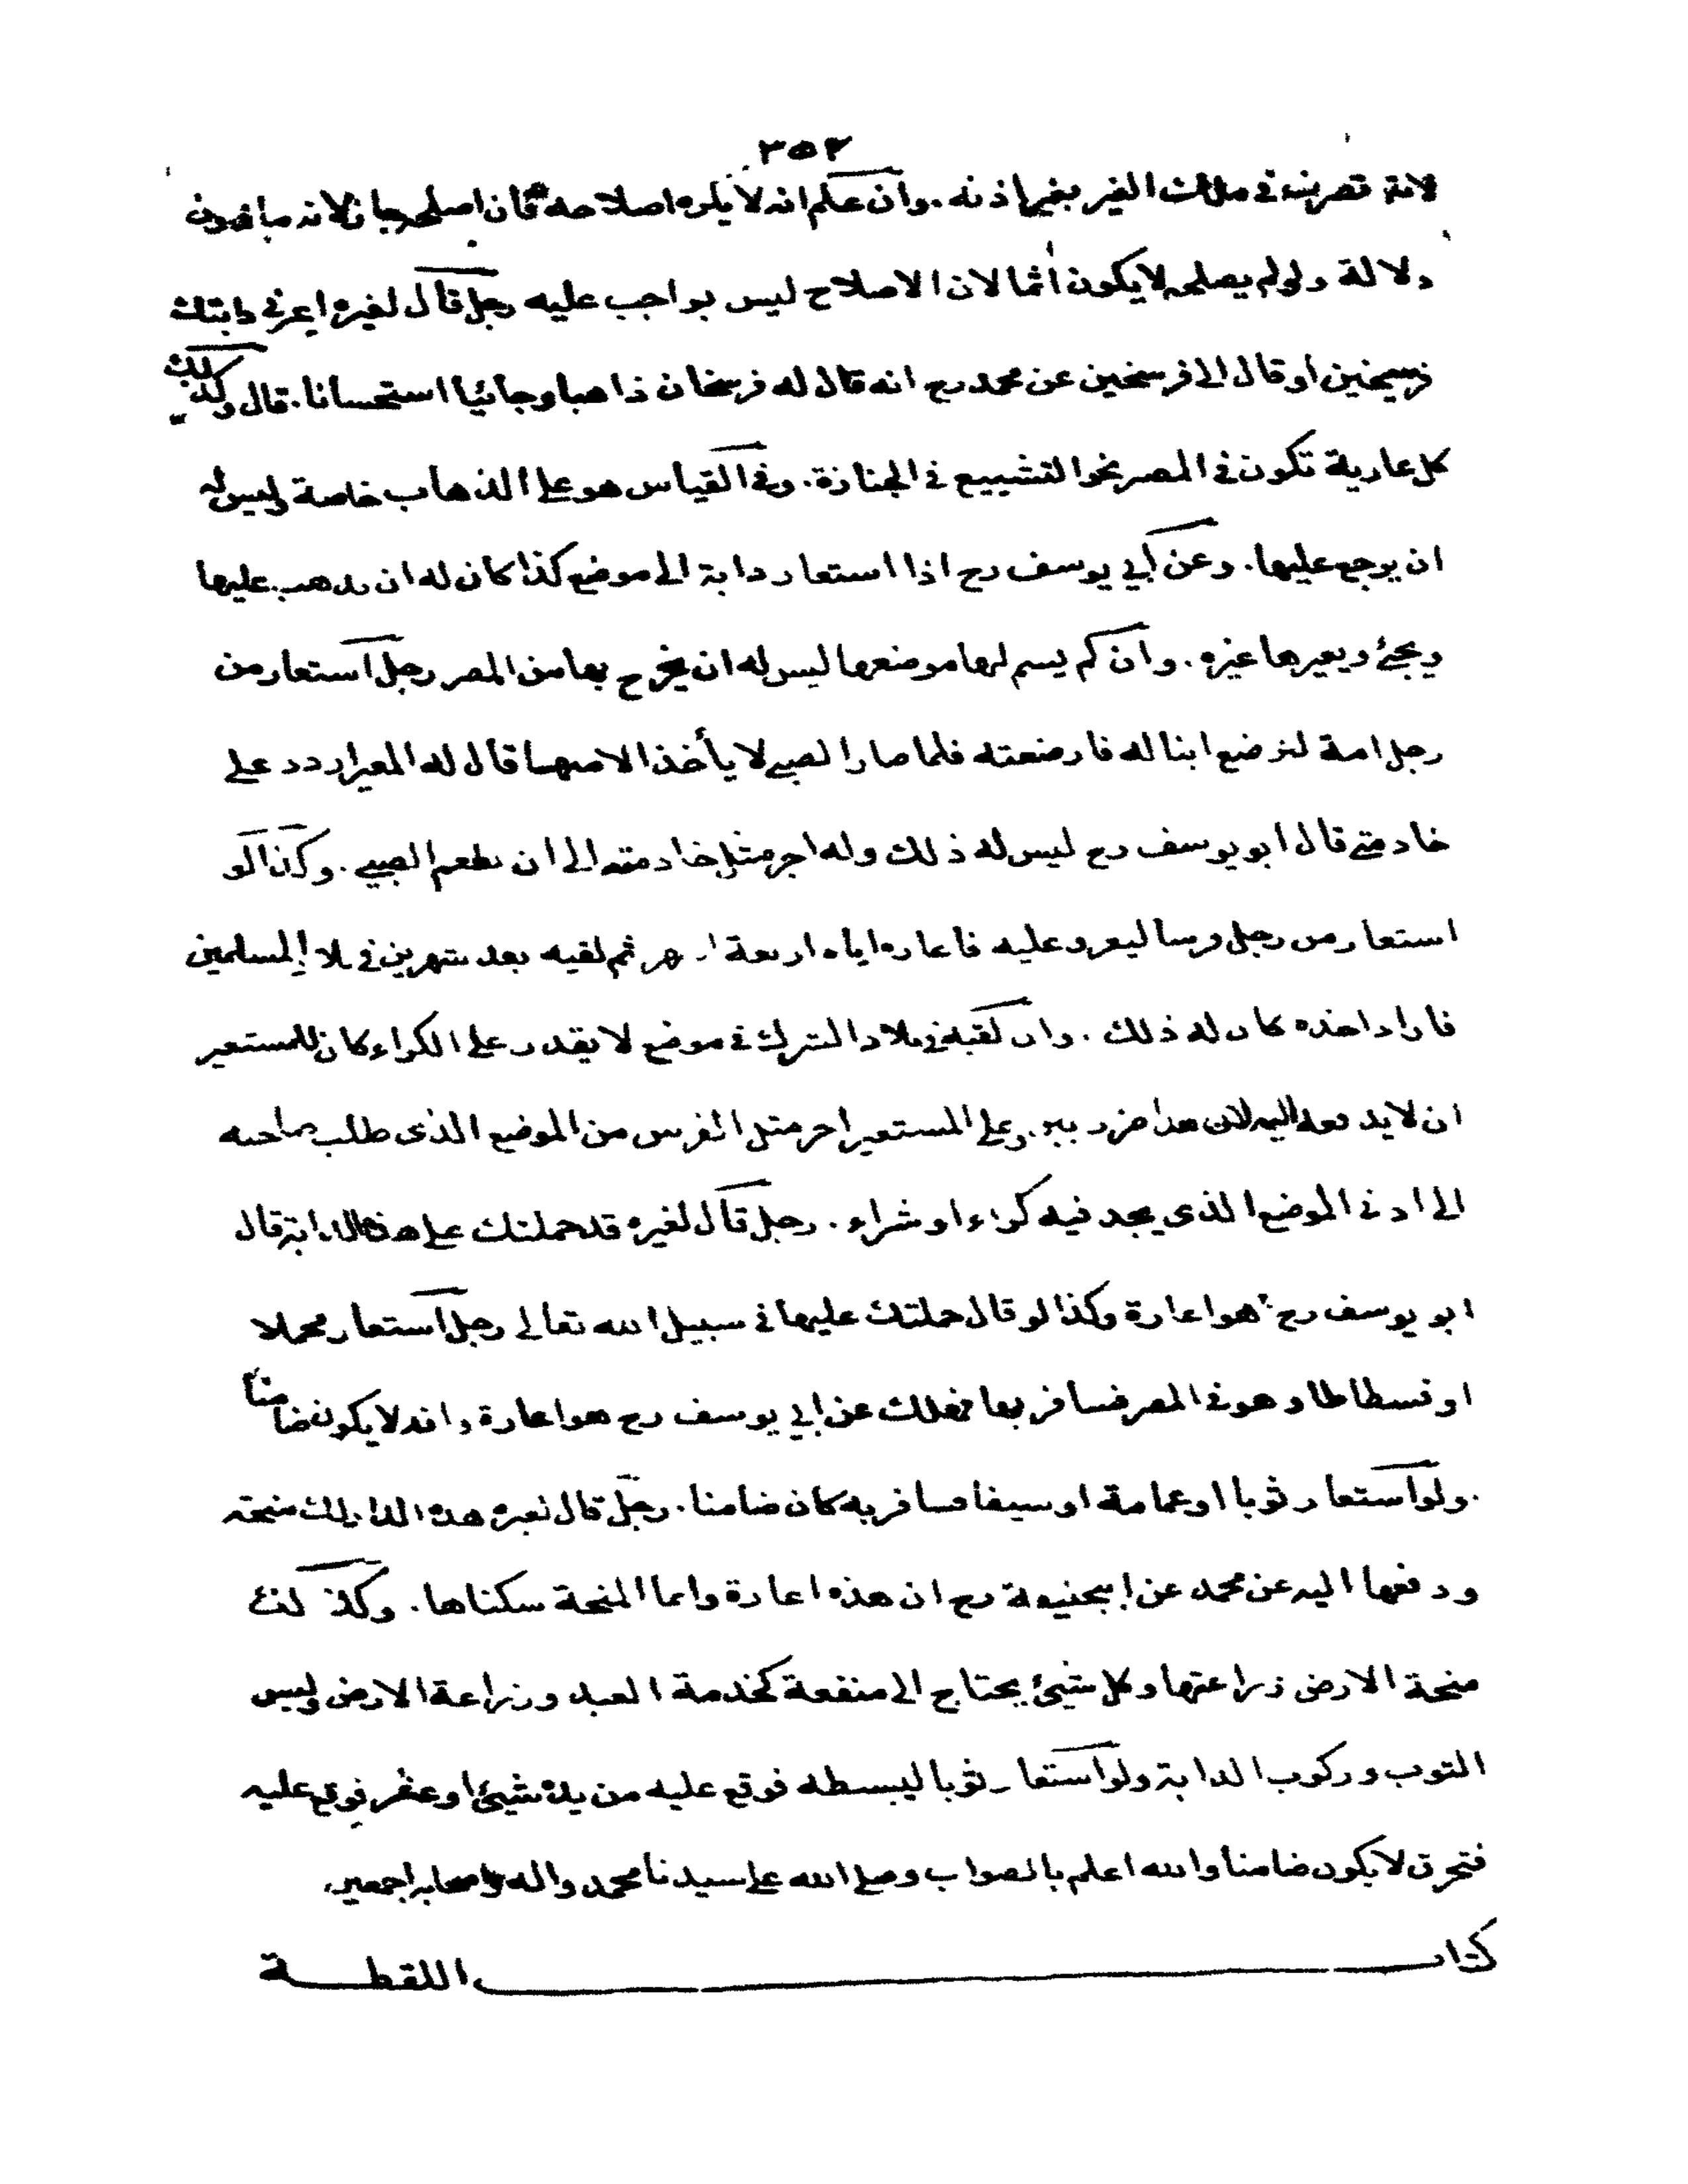 ٣٥٢
لانه تصرف في ملك الغير بغير اذنه . وان علم انه لا يكره اصلاحه فان اصلحه جاز لانه مأذون
دلالة ولو لم يصلحه لا يكون اثما لان الاصلاح ليس بواجب عليه رجل قال لغيره اعرني دابتك
فرسخين او قال الى فرسخين عن محمد رح انه قال له فرسخان ذاهبا وجائيا استحسانا . قال وكذلك
كل عارية تكون في المصر نحو التشييع في الجنازة . وفي القياس هو على الذهاب خاصة وليس له
ان يرجع عليها . وعن ابي يوسف رح اذا استعار دابة الى موضع كذا كان له ان يذهب عليها
ويجئ ويعيرها غيره . وان لم يسم لها موضعها ليس له ان يخرج بها من المصر رجل استعار من
رجل امة لترضع ابنا له فارضعته فلما صار الصبي لا يأخذ الا منها قال له المعير اردد علي
خادمتي قال ابو يوسف رح ليس له ذلك وله اجر مثل خادمته الى ان يطعم الصبي . وكذا لو
استعار من رجل فرسا ليغزو عليه فاعاره اياه اربعة اشهر ثم لقيه بعد شهرين في بلاد المسلمين
فاراد اخذه كان له ذلك . وان لقيه في بلاد الشرك في موضع لا يقدر على الكراء كان للمستعير
ان لا يدفعه اليه لان هذا ضرر . وعلى المستعير اجر مثل الفرس من الموضع الذى طلب صاحبه
الى ادنى الموضع الذى يجد فيه كراء او شراء . رجل قال لغيره قد حملتك على هذه الدابة قال
ابو يوسف رح هو اعارة وكذا لو قال حملتك عليها في سبيل الله تعالى رجل استعار محملا
او فسطاطا وهو في المصر فسافر بها عن ابي يوسف رح هو اعارة وانه لا يكون ضامنا
ولو استعار ثوبا او عمامة او سيفا فسافر به كان ضامنا . رجل قال لغيره هذه الدار لك منحة
ودفعها اليه عن محمد عن ابيحنيفة رح ان هذه اعارة وانما المنحة سكناها . وكذلك
منحة الارض زراعتها وكل شيئ يحتاج الى منفعة كخدمة العبد وزراعة الارض ولبس
الثوب وركوب الدابة ولو استعار ثوبا ليبسطه فوقع عليه من يده شيئ او عثر فوقع عليه
فتخرق لا يكون ضامنا والله اعلم بالصواب وصلى الله على سيدنا محمد واله واصحابه اجمعين.
كتاب اللقطة